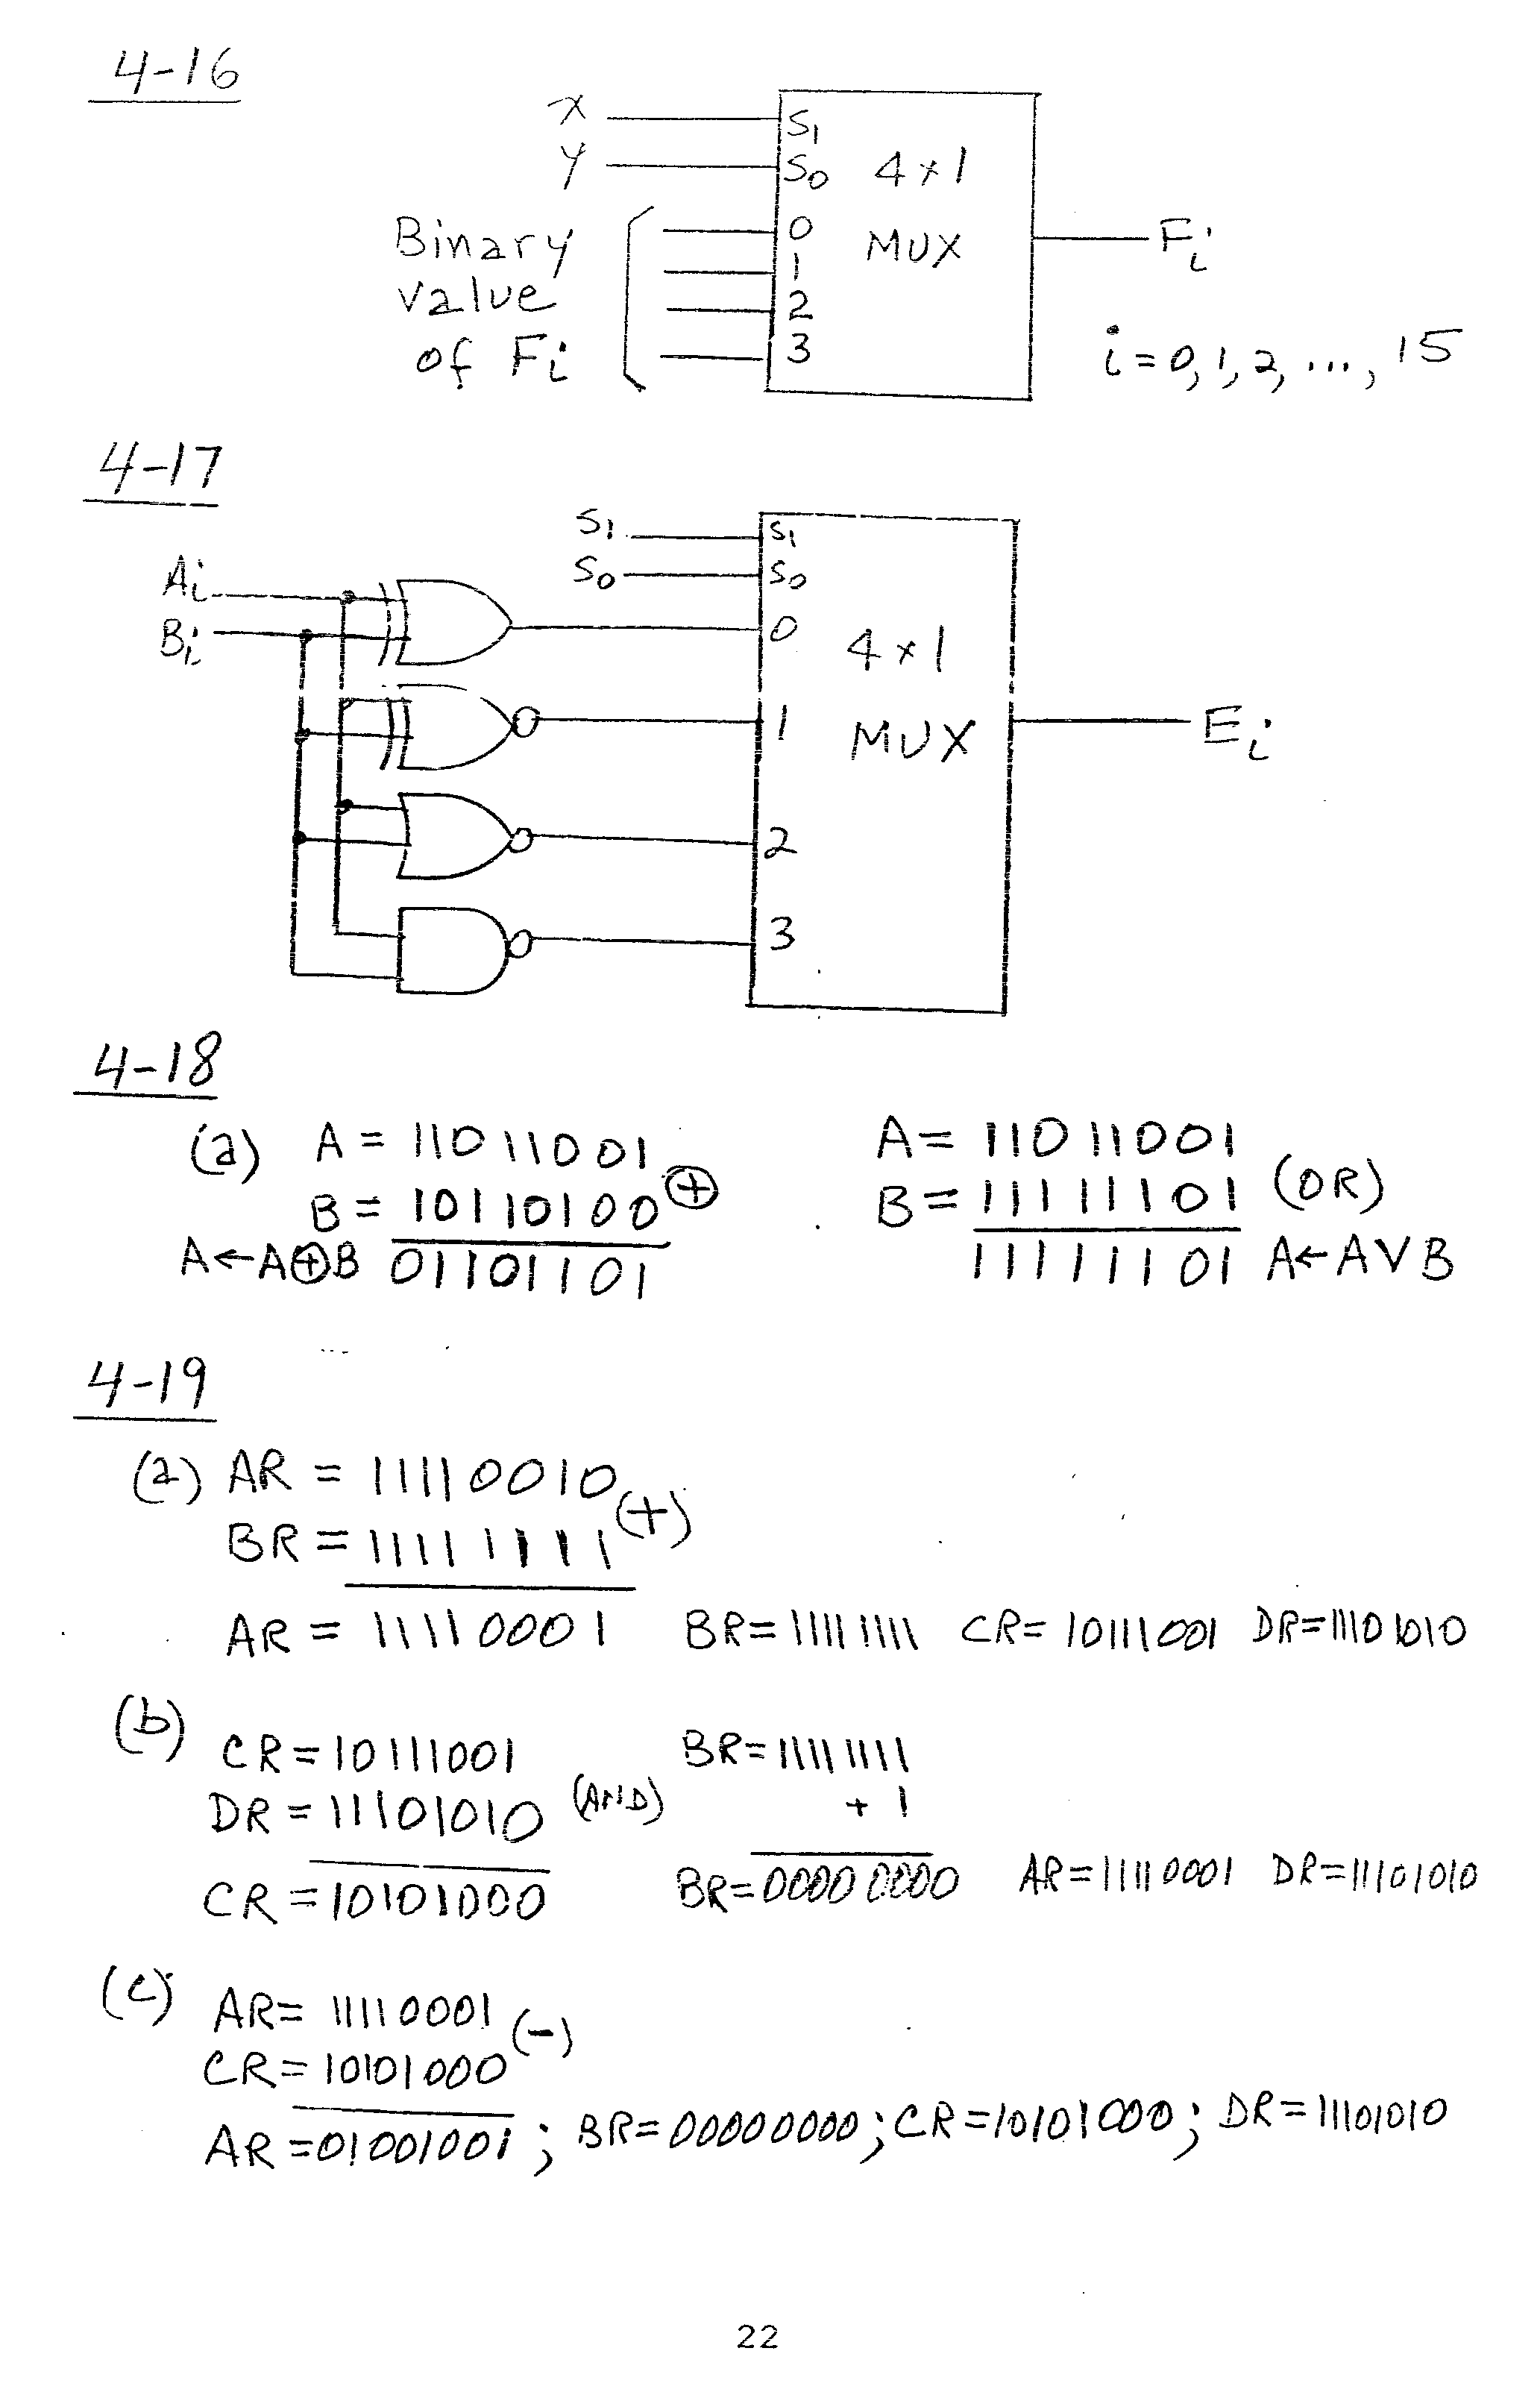 4-16
x
y
S1
S0
4×1
MUX
0
1
2
3
Binary
value
of Fi
Fi
i = 0, 1, 2, ..., 15
4-17
S1
S0
S1
S0
Ai
Bi
0
1
2
3
4×1
MUX
Ei
4-18
(a) A = 11011001
B = 10110100 ⊕
A←A⊕B 01101101
A = 11011001
B = 11111101 (OR)
11111101 A←A∨B
4-19
(a) AR = 11110010
BR = 11111111 (+)
AR = 11110001 BR=11111111 CR=10111001 DR=11101010
(b)
CR=10111001 BR=11111111
DR=11101010 (AND) +1
CR=10101000 BR=00000000 AR=11110001 DR=11101010
(c) AR= 11110001 (-)
CR=10101000
AR=01001001; BR=00000000; CR=10101000; DR=11101010
22